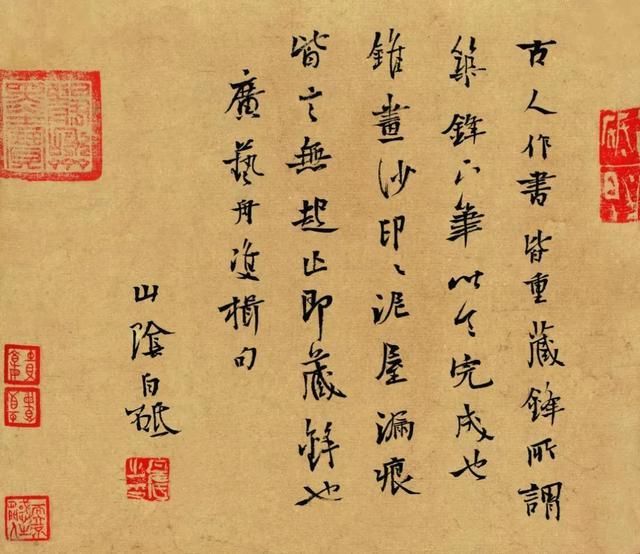 古人作書皆重藏鋒所謂
築鋒下筆以令完成也
錐畫沙印〻泥屋漏痕
皆言無起止即藏鋒也
廣藝舟雙楫句
山陰白砥